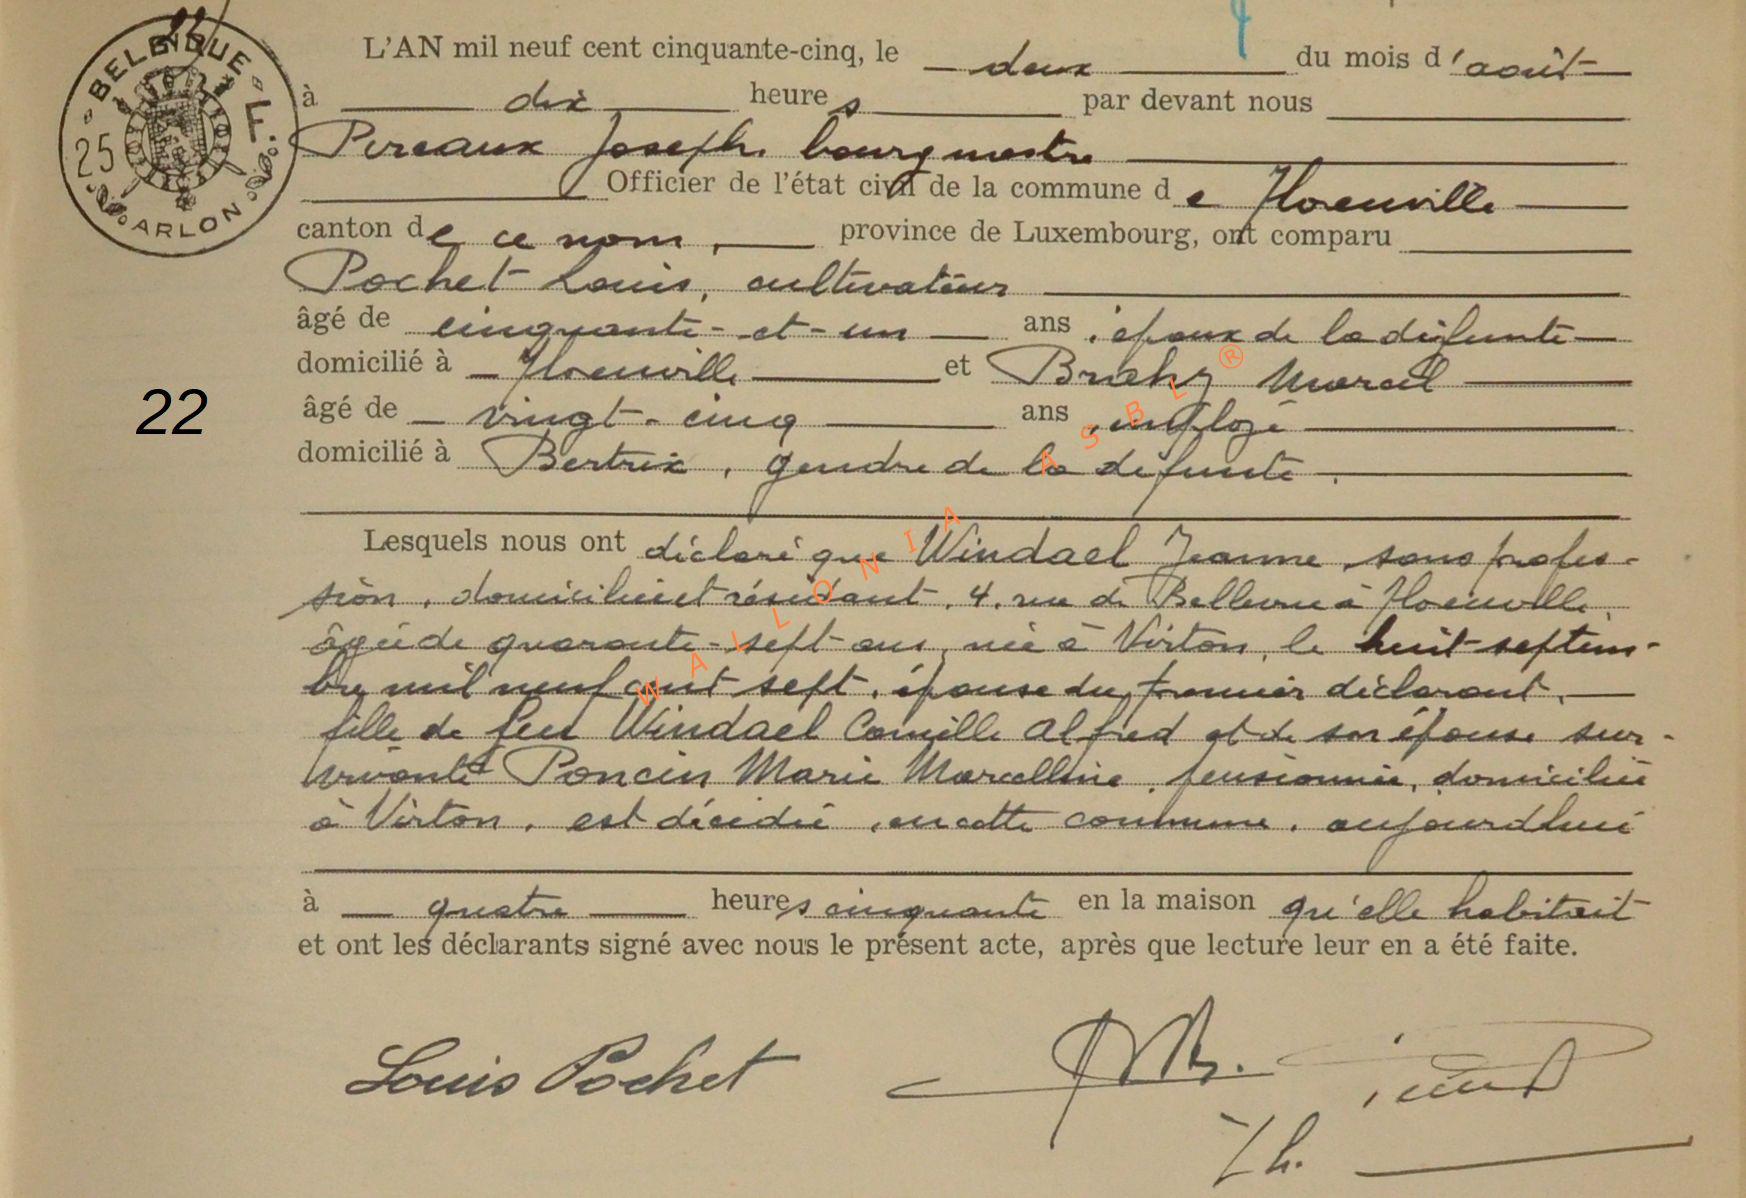 BELGIQUE
25 F.
ARLON
L'AN mil neuf cent cinquante-cinq, le deux du mois d'août
à dix heures par devant nous
Pireaux Joseph, bourgmestre
Officier de l'état civil de la commune de Florenville
canton de ce nom, province de Luxembourg, ont comparu
Pochet Louis, cultivateur
âgé de cinquante-et-un ans, époux de la défunte
domicilié à Florenville et Marcel
22
âgé de vingt-cinq ans, employé
domicilié à Bertrix, gendre de la défunte.
Lesquels nous ont déclaré que Windael Jeanne, sans profes-
sion, domiciliée et résidant, 4, rue de Bellevue à Florenville,
âgée de quarante-sept ans, née à Virton, le huit septem-
bre mil neuf cent sept, épouse du premier déclarant,
fille de feu Windael Camille Alfred et de son épouse sur-
vivante Poncin Marie Marcelline, pensionnée, domiciliée
à Virton, est décédée, en cette commune, aujourdhui
à quatre heures cinquante en la maison qu'elle habitait
et ont les déclarants signé avec nous le présent acte, après que lecture leur en a été faite.
Louis Pochet
WALLONIA ASBL ®